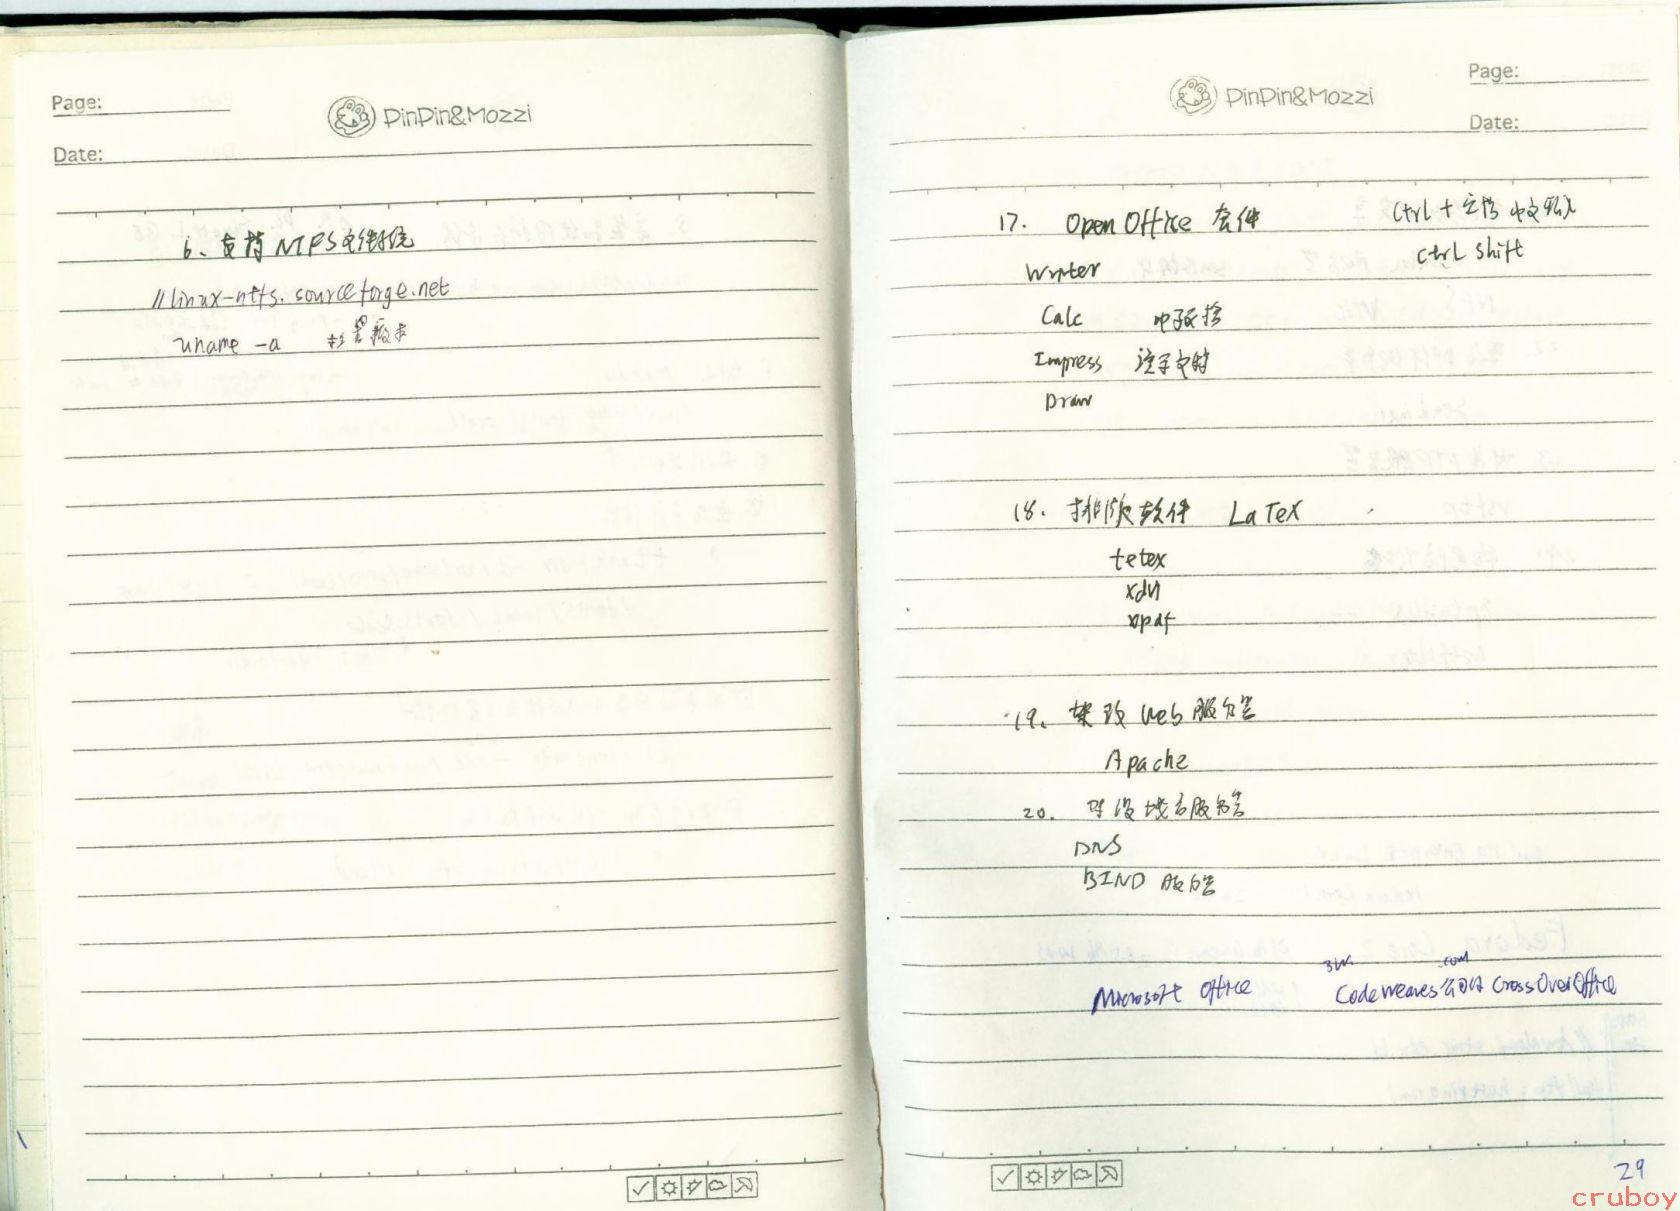 Page:
PinPin&Mozzi
Date:
6、支持NTFS文件系统
//linux-ntfs.sourceforge.net
uname -a
Page:
PinPin&Mozzi
Date:
17. Open Office 套件 Ctrl + 空格 中文输入
Ctrl shift
Writer
Calc 电子表格
Impress 演示文稿
Draw
18. 排版软件 LaTeX
tetex
xdvi
xpdf
19. 架设Web服务器
Apache
20. 架设域名服务器
DNS
BIND 服务器
3W .com
Microsoft Office CodeWeaves公司的CrossOverOffice
29
cruboy